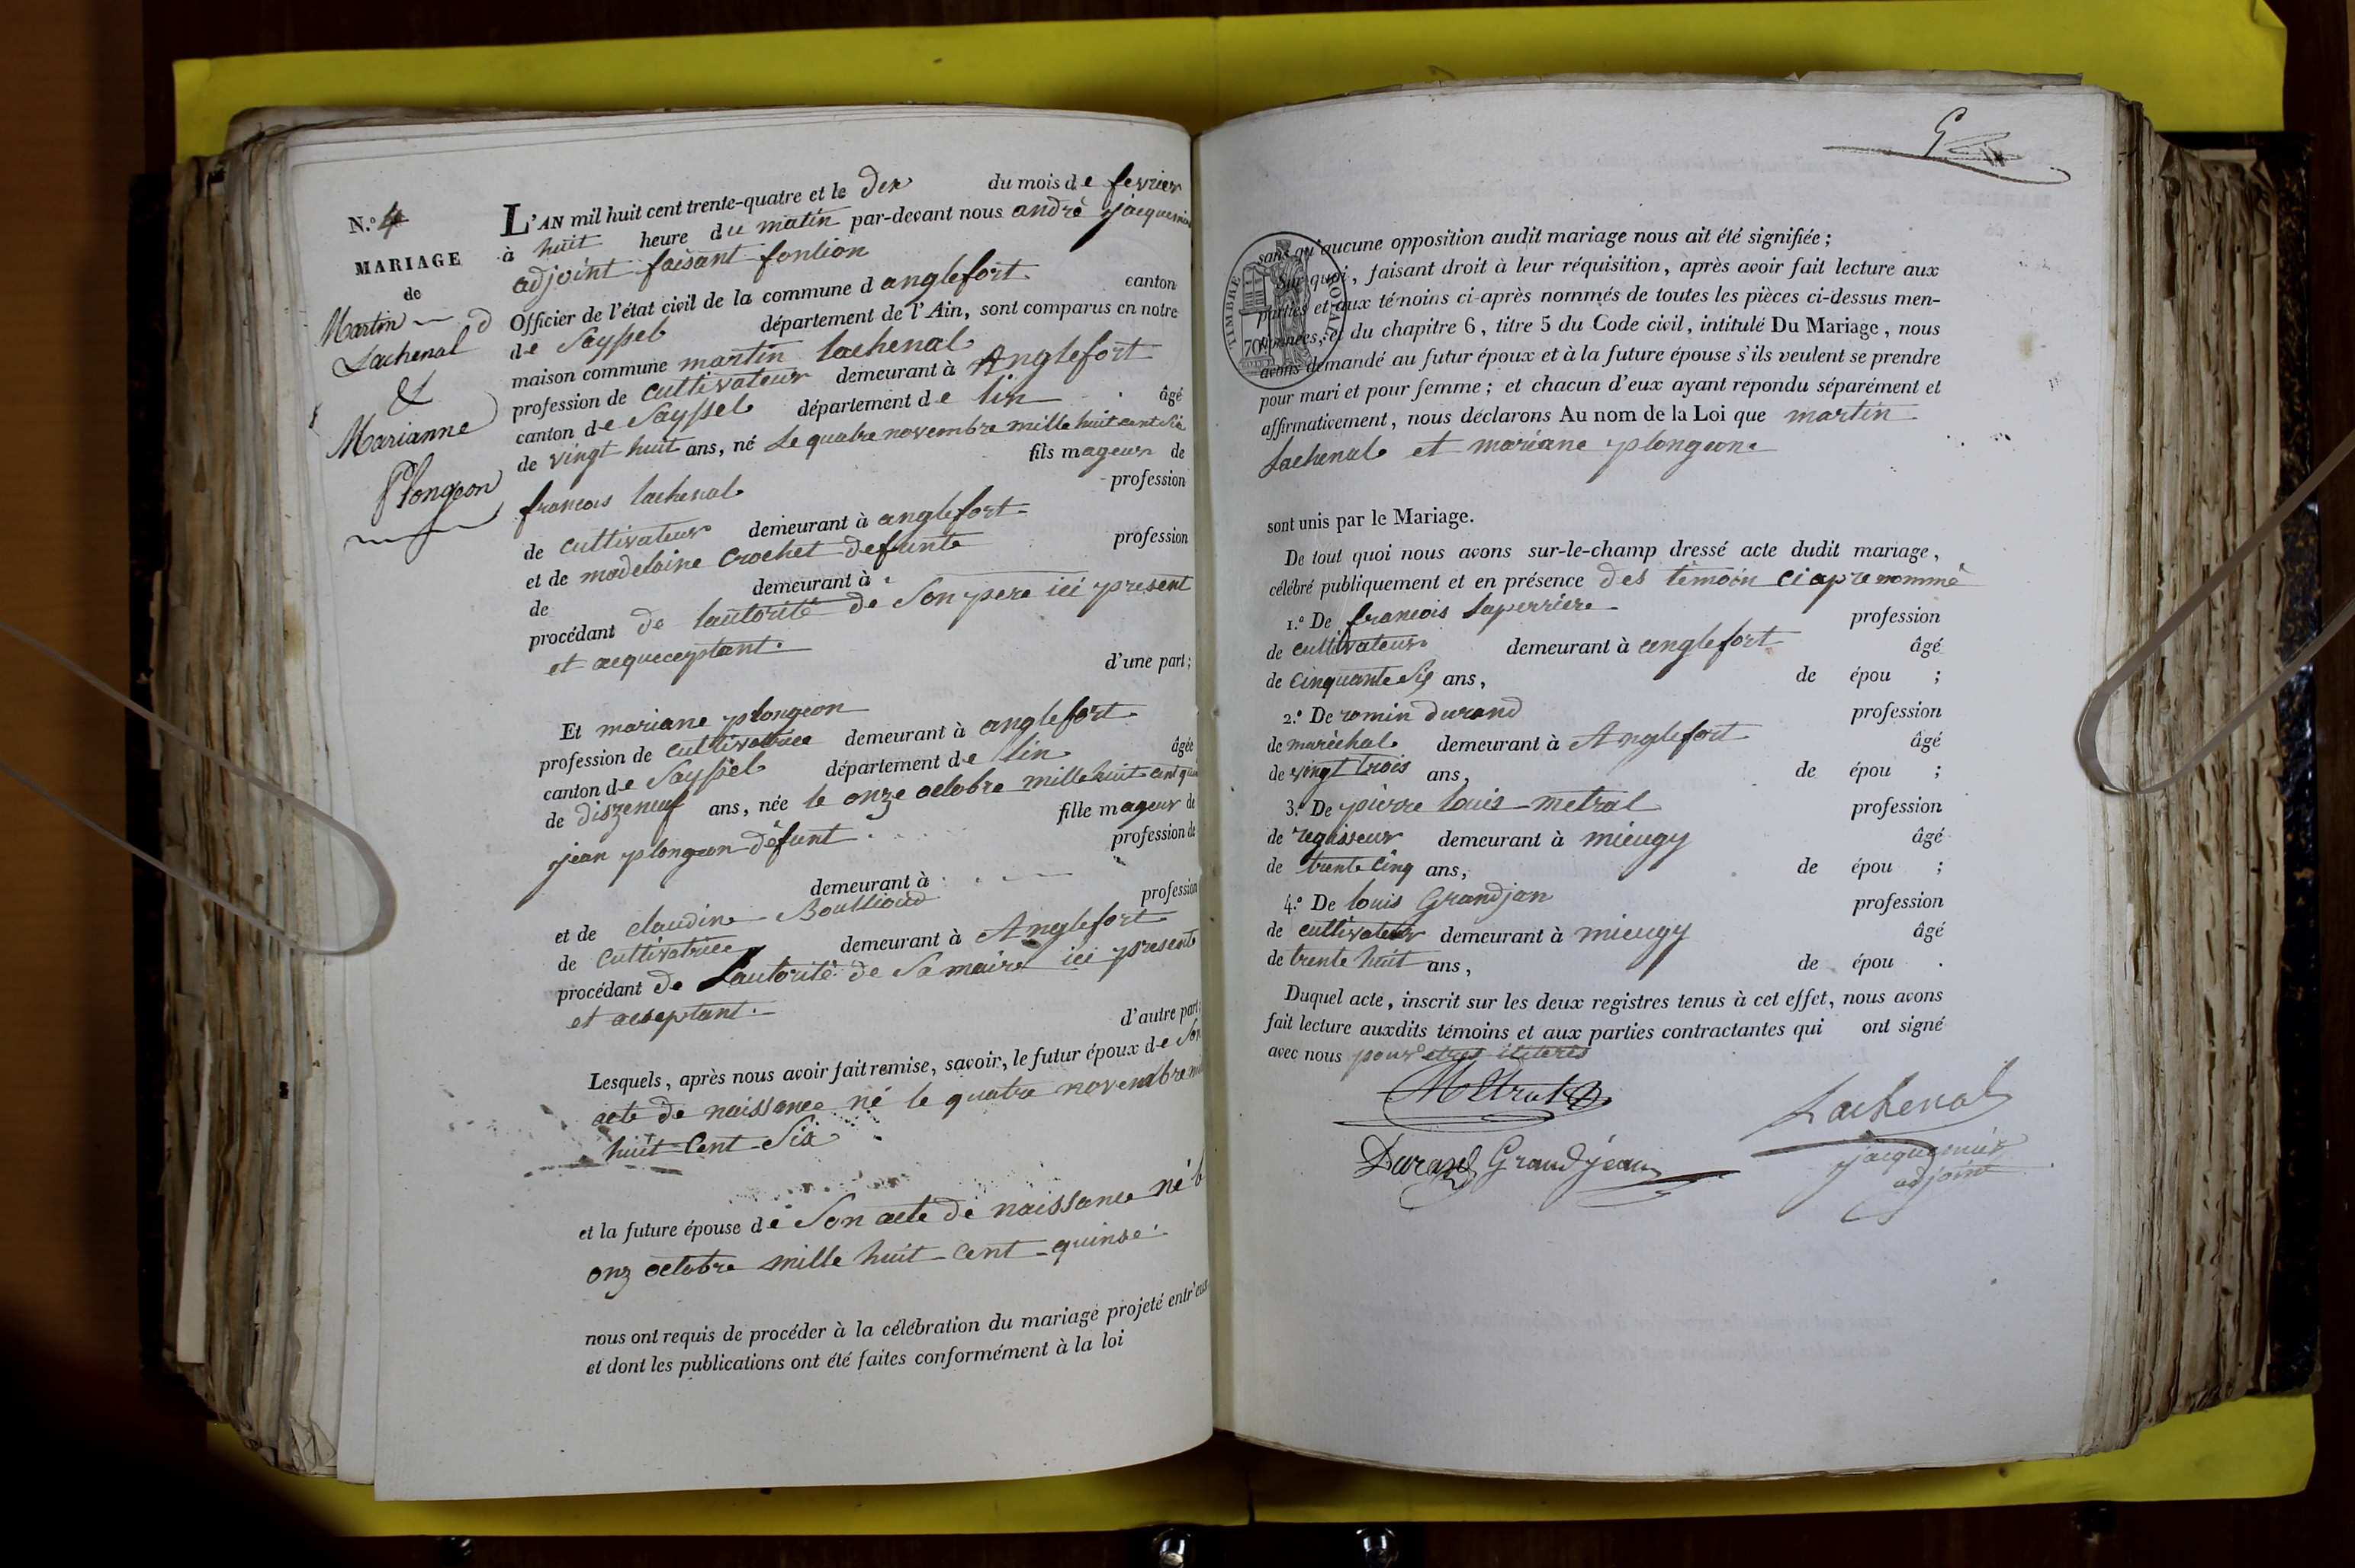 N.º 4
MARIAGE
de
Martin
Lachenal
&
Marianne
Plongeon
L'AN mil huit cent trente-quatre et le dix du mois de fevrier
à huit heure du matin par-devant nous andrè jacquemier
adjoint faisant fontion
Officier de l'état civil de la commune d anglefort canton
de Seyssel département de l'Ain, sont comparus en notre
maison commune martin lachenal
profession de cultivateur demeurant à Anglefort
canton de Seyssel département de lin âgé
de vingt huit ans, né le quatre novembre mille huit cent six
fils mageur de
francois lachenal profession
de cultivateur demeurant à anglefort
et de madelaine Crochet defunte profession
de demeurant à
procédant de lautorité de Son pere ici present
et acqueceptant.
d'une part;
Et mariane plongeon
profession de cultivatrice demeurant à anglefort
canton de Seyssel département de lin âgée
de diszeneuf ans, née le onze octobre mille huit cent
fille mageur de
jean plongeon défunt profession de
demeurant à
et de claudine Boullioud profession
de cultivatrice demeurant à Anglefort
procédant de Lautorité de Sa maire ici presente
et acseptant.
d'autre part;
Lesquels, après nous avoir fait remise, savoir, le futur époux de Son
acte de naissance né le quatre novembre
huit Cent Six
et la future épouse de Son acte de naissance né
onz octobre mille huit Cent quinse
nous ont requis de procéder à la célébration du mariage projeté entr'eux
et dont les publications ont été faites conformément à la loi
TIMBRE ROYAL
70
sans qu'aucune opposition audit mariage nous ait été signifiée;
Sur quoi, faisant droit à leur réquisition, après avoir fait lecture aux
parties et aux témoins ci-après nommés de toutes les pièces ci-dessus men-
tionnées, et du chapitre 6, titre 5 du Code civil, intitulé Du Mariage, nous
avons demandé au futur époux et à la future épouse s'ils veulent se prendre
pour mari et pour femme; et chacun d'eux ayant repondu séparément et
affirmativement, nous déclarons Au nom de la Loi que martin
Lachenal et mariane plongeon
sont unis par le Mariage.
De tout quoi nous avons sur-le-champ dressé acte dudit mariage,
célébré publiquement et en présence des tèmoin ci apre nommé
1.º De francois Laperriere profession
de cultivateur demeurant à anglefort âgé
de cinquante Six ans, de épou ;
2.º De romin durand profession
de marèchal demeurant à Anglefort âgé
de vingt trois ans, de épou ;
3.º De pierre louis metral profession
de regisseur demeurant à mieugy âgé
de trente cinq ans, de épou ;
4.º De louis Grandjan profession
de cultivateur demeurant à mieugy âgé
de trente huit ans, de épou .
Duquel acte, inscrit sur les deux registres tenus à cet effet, nous avons
fait lecture auxdits témoins et aux parties contractantes qui ont signé
avec nous pour etres iliterès
Metral
Lachenal
Durand Grandjean
jacquemier
adjoint